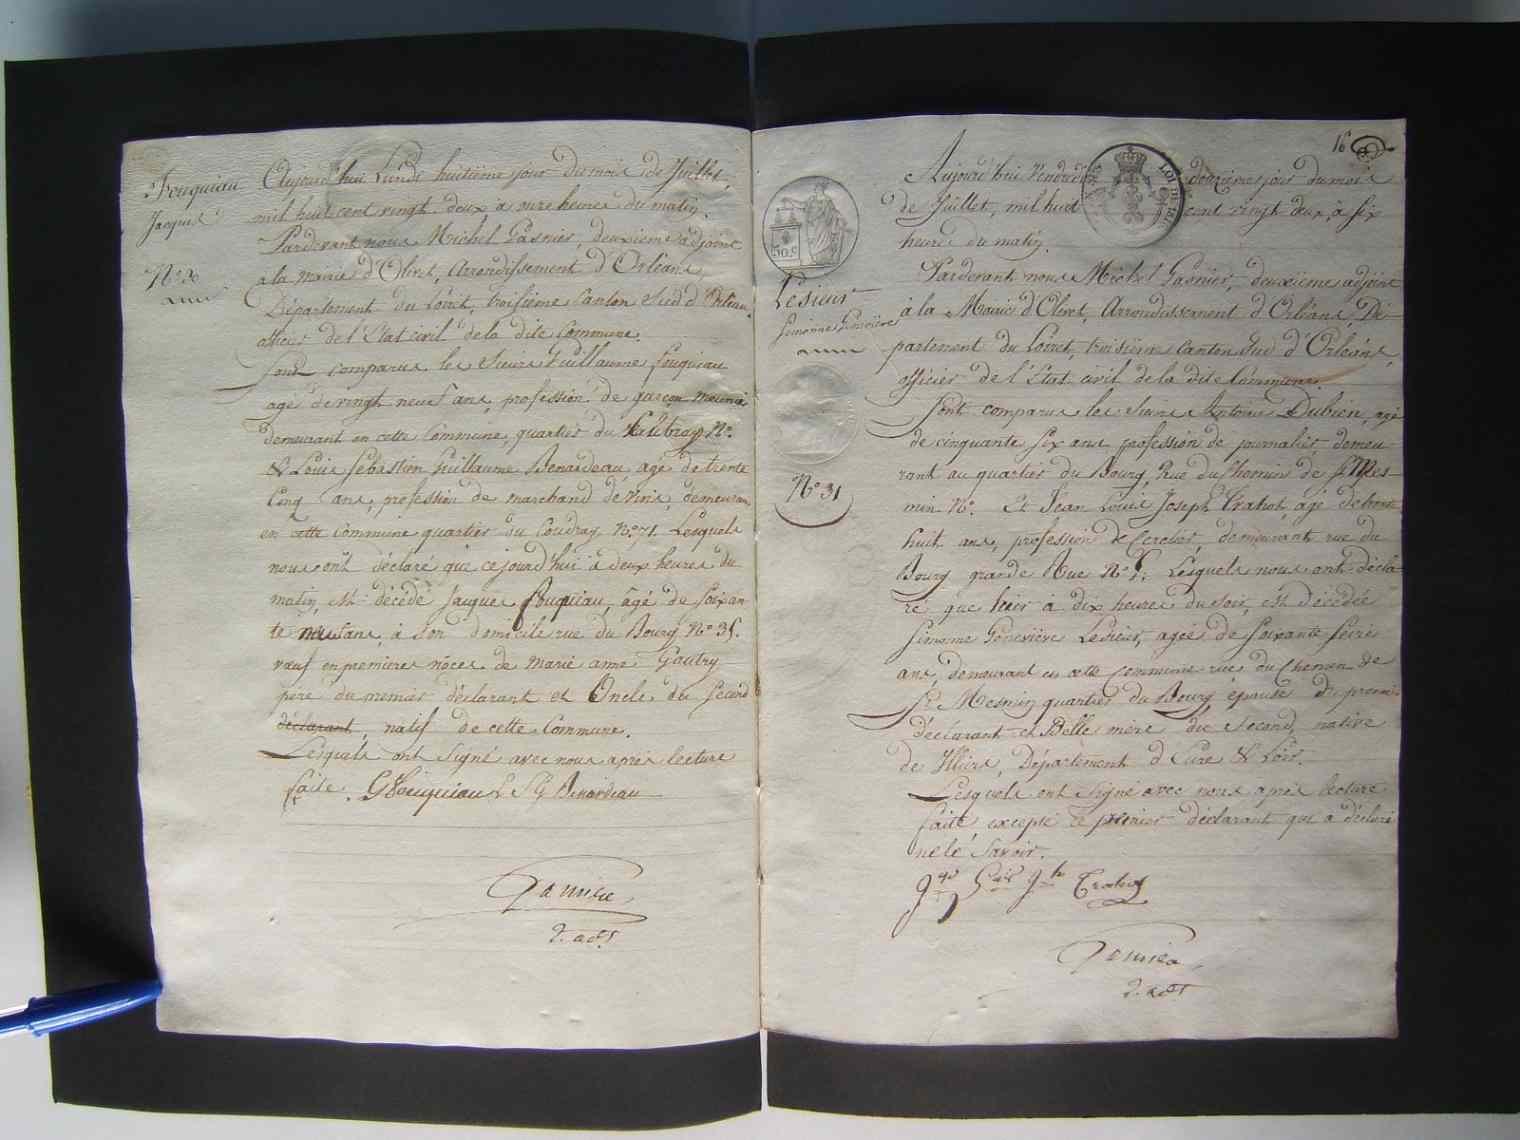 Fouquiau
Jacques
N° 30
Aujourd'hui Lundi huitième jour du mois de Juillet,
mil huit cent vingt deux à onze heures du matin.
Pardevant nous Michel Pasnier, deuxième adjoint
à la mairie d'Olivet, Arrondissement d'Orléans,
Département du Loiret, troisième Canton Sud d'Orléans,
officier de l'Etat civil de la dite Commune.
Sont comparus les Sieurs Guillaume fouquiau
agé de vingt neuf ans, profession de garçon meunier
demeurant en cette Commune, quartier du N°.
& Louis Sébastien Guillaume Benardeau, agé de trente
Cinq ans, profession de marchand de vins, demeurant
en cette Commune quartier du Coudray N° 71. Lesquels
nous ont déclaré que ce jourd'hui à deux heures du
matin, est décédé Jacques fouquiau, âgé de soixan
te neuf ans, à son domicile rue du Bourg N° 35.
veuf en premières nôces de Marie anne Gautry
père du premier déclarant et Oncle du Second
déclarant, natif de cette Commune.
Lesquels ont Signé avec nous après lecture
faite. G Fouquiau L S G Benardeau
Pasnier
2. adt
16
Lesieur
Simonne Genevière
N° 31
50. C
LOI DE 1816
Aujourd'hui Vendredi douzième jour du mois
de Juillet, mil huit cent vingt deux, à six
heures du matin.
Pardevant nous Michel Pasnier, deuxième adjoint
à la Mairie d'Olivet, Arrondissement d'Orléans, Dé-
partement du Loiret, troisième Canton Sud d'Orléans,
officier de l'Etat civil de la dite Commune.
Sont comparus les Sieurs Antoine Dubien, agé
de cinquante six ans, profession de journalier, demeu
rant au quartier du Bourg Rue du Chemin de St Mes-
min N°. Et Jean Louis Joseph Crahot, agé de trente
huit ans, profession de Cerclier, demeurant rue du
Bourg grande Rue N° 5. Lesquels nous ont décla-
ré que hier à dix heures du soir, est décédée
Simonne Génevière Lesieur, agée de soixante seize
ans, demeurant en cette commune rue du Chemin de
St Mesmin quartier du Bourg épouse du premier
déclarant et Belle mère du second, native
de Illiers, Département d'Eure & Loir.
Lesquels ont Signé avec nous après lecture
faite, excepté le premier déclarant qui a déclaré
ne le Savoir.
Crahot
Pasnier
2. adt